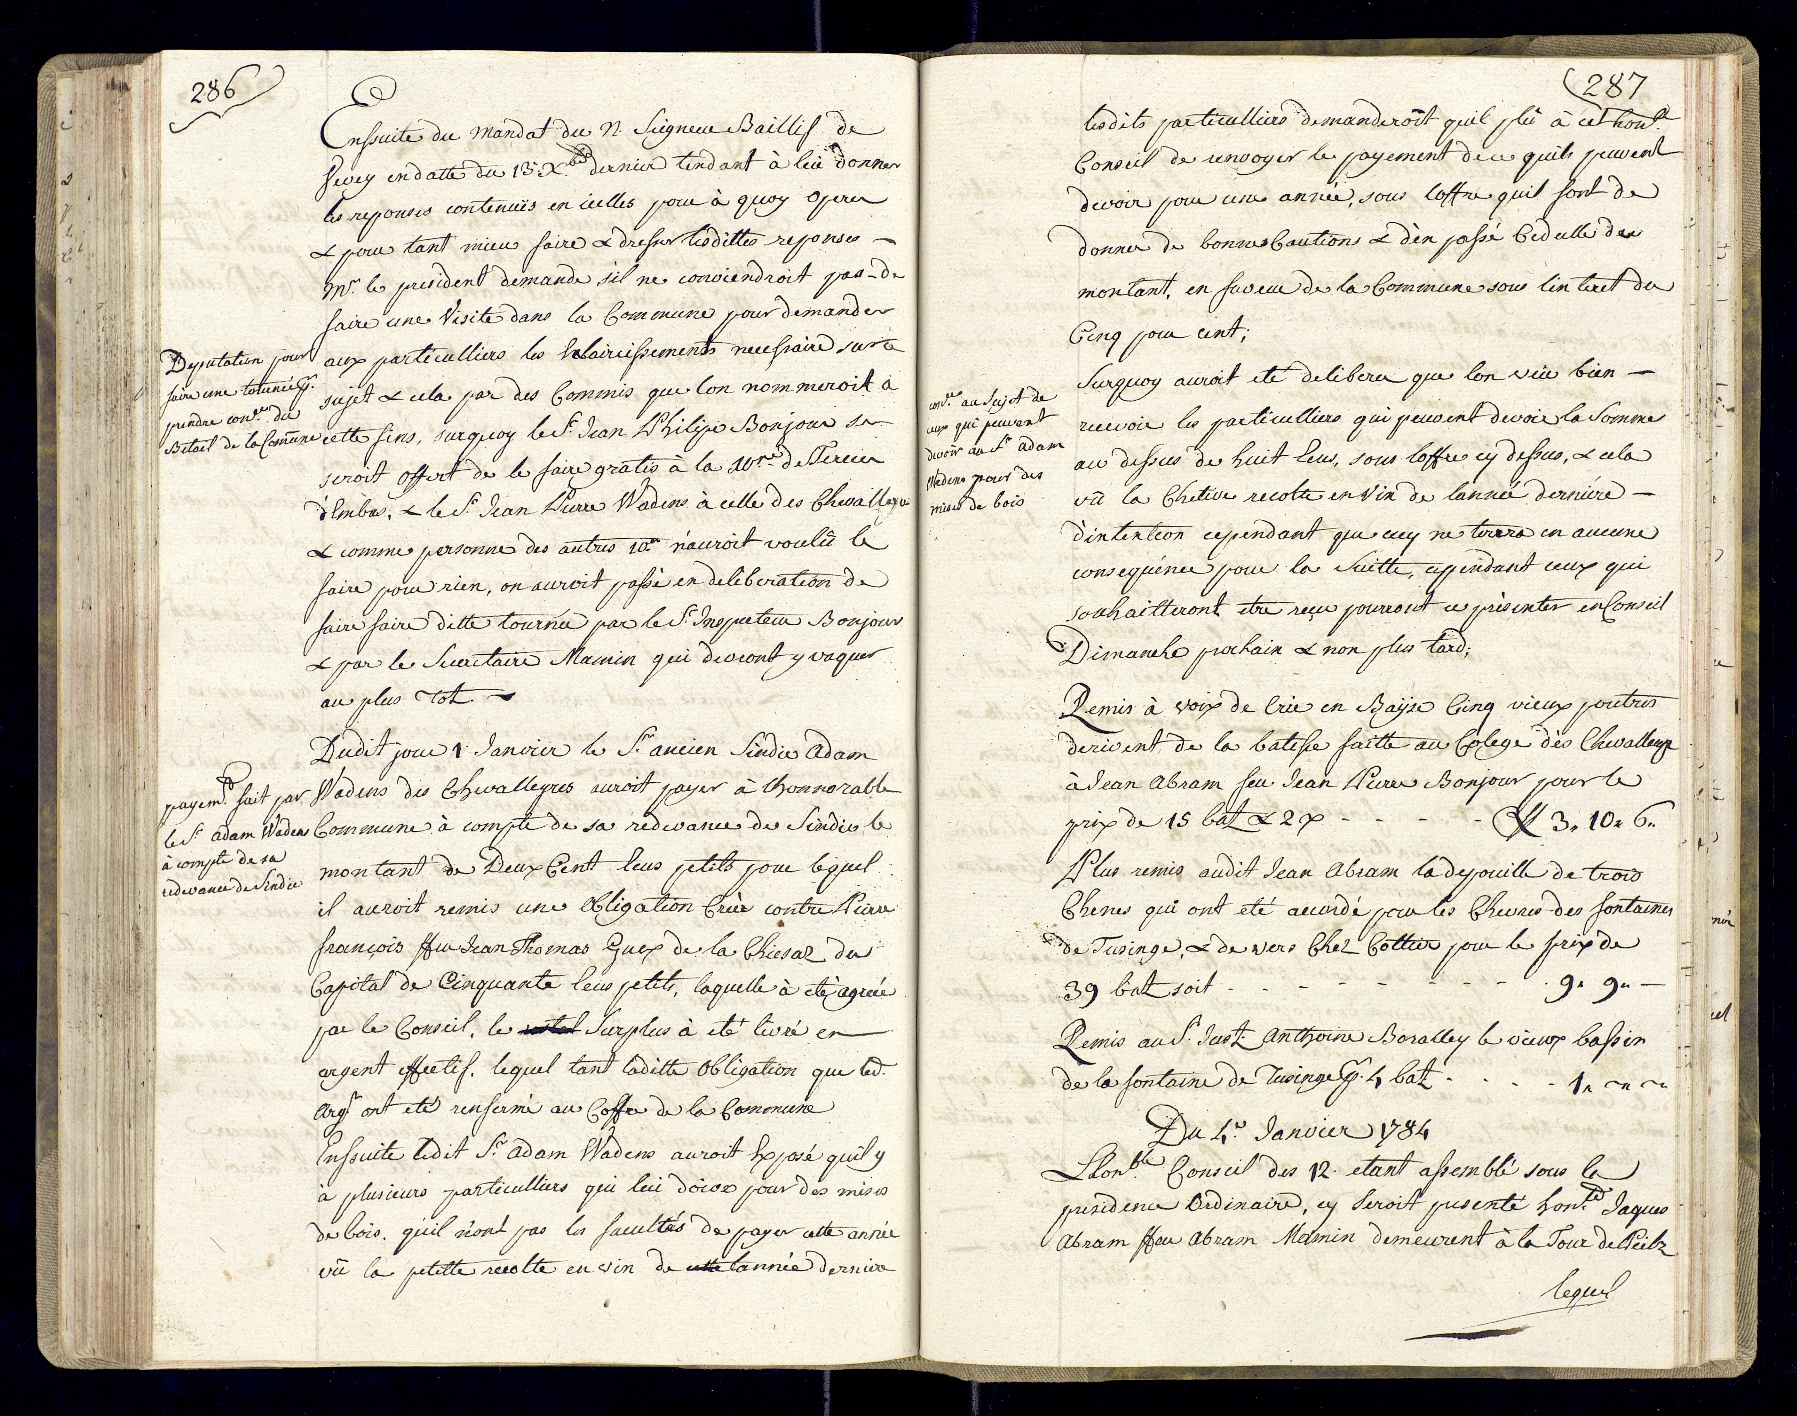 286
Ensuite du Mandat du N. Seigneur Baillif de
Vevey endatte du 13e Xbre dernier tendant à lui donner
les reponses contenuës en icelles pour à quoy operer
& pour tant mieu faire & dresser lesdittes reponses –
Mr. le president demande sil ne conviendroit pas de
faire une Visite dans la Commune pour demander
aux particulliers les Eclaircissements necessaire sur ce
sujet & cela par des Commis que lon nommeroit à
cette fins, surquoy le Sr. Jean Philipe Bonjour se
seroit offert de le faire gratis à la 10ne de Tercier
d'Embas, & le Sr. Jean Pierre Wadens à celle des Chevalleyres
& comme personne des autres 10ne n'auroit voulû le
faire pour rien, on auroit passé en deliberation de
faire faire ditte tournée par le Sr. Inspecteur Bonjour
& par le Secretaire Mamin qui devront y vaquer
au plus Tot –
Deputation pour
faire une tournée pr.
prendre con.ce du
Betail de la Comune
Dudit jour 1. Janvier le Sr. ancien Sindic Adam
Wadens des Chevalleyres auroit payer à Lhonnorable
Commune à compte de sa redevance de Sindic le
montant de Deux Cent Ecus petits pour lequel
il auroit remis une Obligation Crüe contre Pierre
françois ffeu Jean Thomas Guex de la Chiesaz du
Capital de Cinquante Ecus petits, laquelle à eté agréée
par le Conseil, le Surplus à eté livré en
argent effectif. lequel tant laditte Obligation que led.
Argt ont eté renfermé au Coffre de la Commune
payemt. fait par
le Sr. Adam Wadens
à compte de sa
redevance de Sindic
Ensuite ledit Sr. Adam Wadens auroit Exposé quil y
à plusieurs particulliers qui lui doive pour des mises
de bois, quil n'ont pas les facultés de payer cette année
vû la petitte recolte en vin de lannée derniere
287
lesdits particulliers demanderoit quil plû à cet honb.
Conseil de renvoyer le payement de ce quils peuvent
devoir pour une année, sous loffre quil font de
donner de bonnes Cautions & d'en passé Cedulle du
montant, en faveur de la Commune sous linteret du
Cinq pour cent;
Surquoy auroit eté deliberer que lon veü bien –
recevoir les particulliers qui peuvent devoir la Somme
au dessus de huit Ecus, sous loffre cy dessus, & cela
vû la Chetive recolte en Vin de lannée derniére –
d'intention cependant que cecy ne tirera en aucune
conséquence pour la Suitte, cependant ceux qui
souhaitteront etre reçu pourront ce présenter en Conseil
Dimanche prochain & non plus tard;
con.ce au Sujet de
ceux qui peuvent
devoir au Sr. Adam
Wadens pour des
mises de bois
Remis à voix de Crie en Bayse Cinq vieux poutres
derivent de la batisse faitte au Colege des Chevalleyre
à Jean Abram feu Jean Pierre Bonjour pour le
prix de 15 batz & 2 x - - - - 3„ 10„ 6„
Plus remis audit Jean Abram la depouille de trois
Chenes qui ont eté accordé pour les Chevres des fontaines
de Tusinge, & de vers Chez Cottier pour le prix de
39 batz soit - - - - - - - 9„ 9„ –
Remis au Sr. Just. Anthoine Boralley le vieux bassin
de la fontaine de Tusinge pr. 4 batz - - - - 1„ ~„ ~
Du 4e. Janvier 1784
Lhonble Conseil des 12. etant assemblé sous la
presidence Ordinaire, cy Seroit presenté hon.ble Jaques
Abram ffeu Abram Mamin demeurent à la Tour de Peilz
lequel